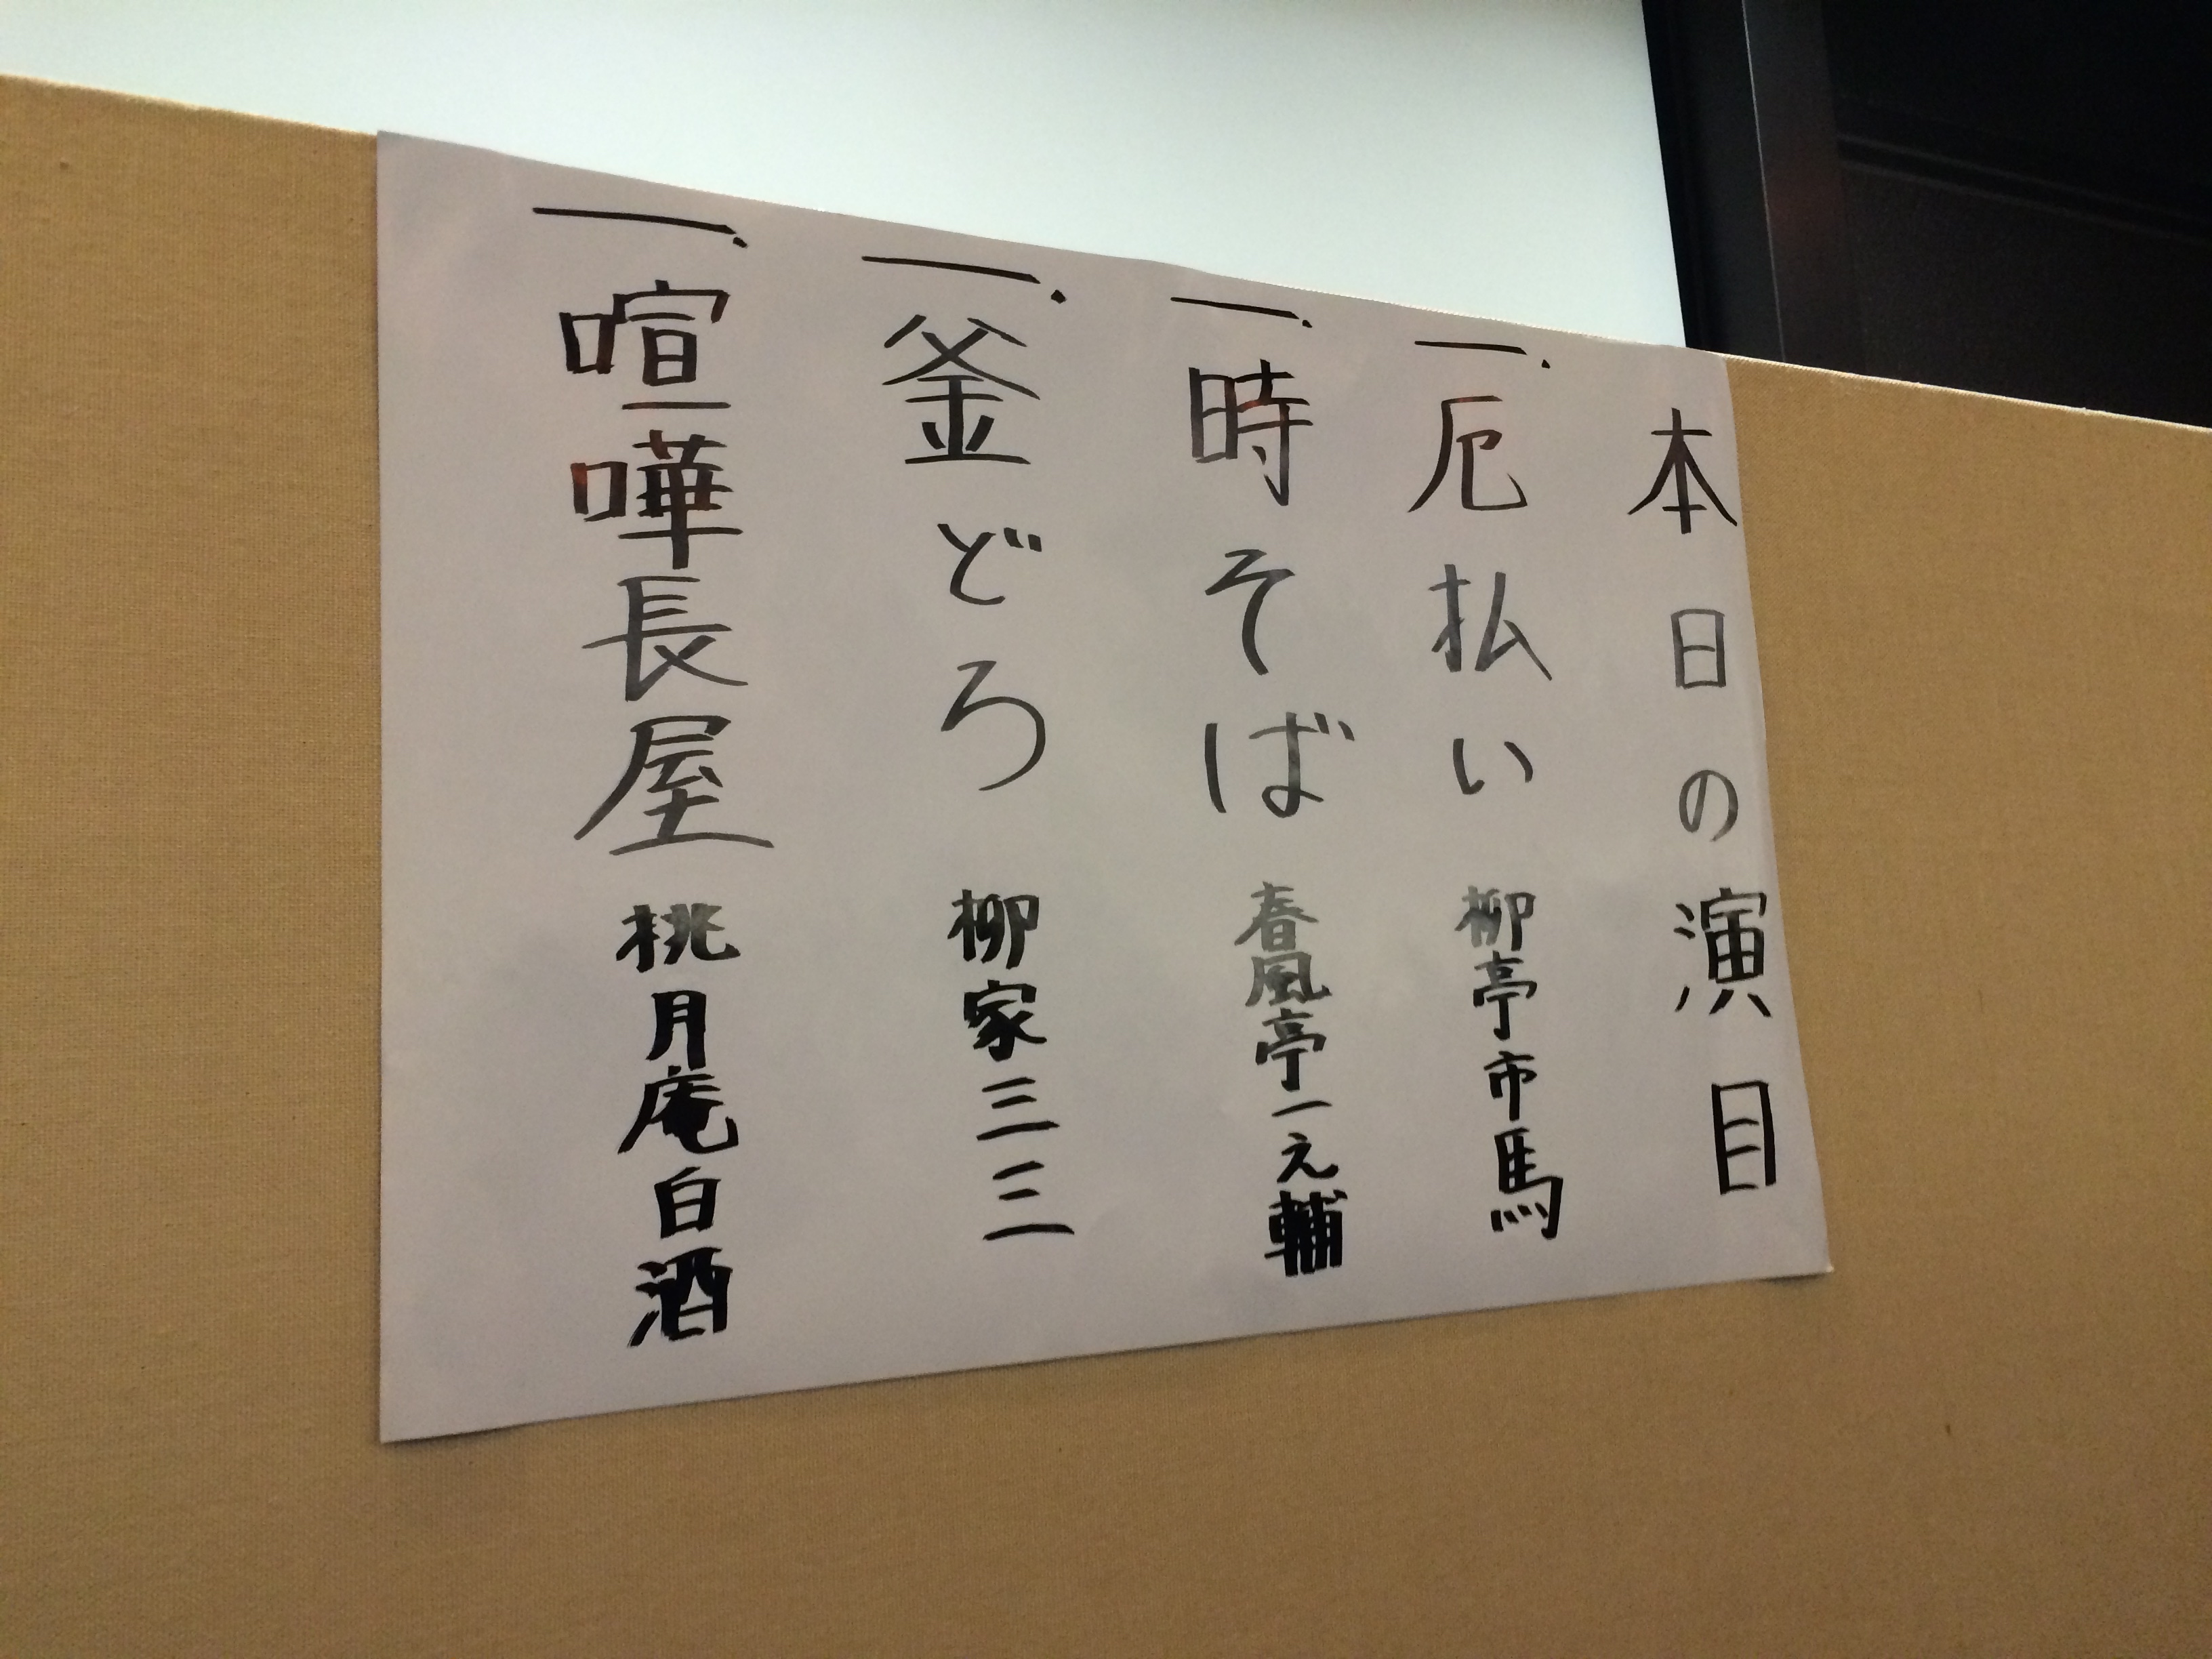 本日の演目
一、厄払い 柳亭市馬
一、時そば 春風亭一之輔
一、釜どろ 柳家三三
一、喧嘩長屋 桃月庵白酒